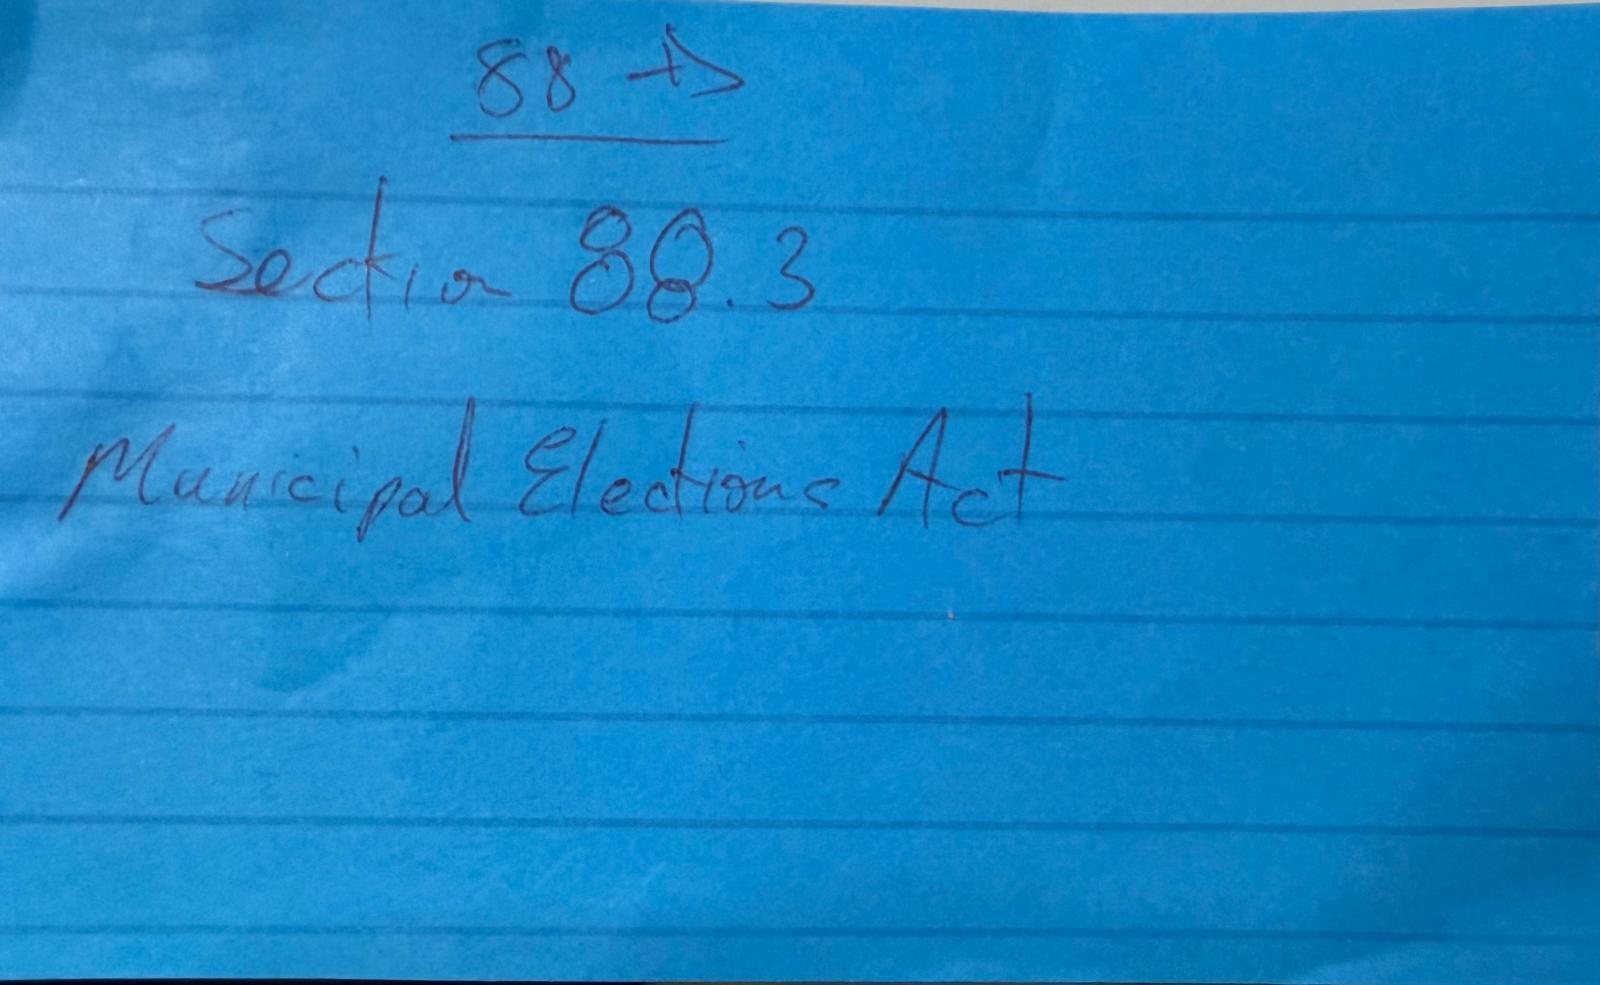 88 →
Section 88.3
Municipal Elections Act